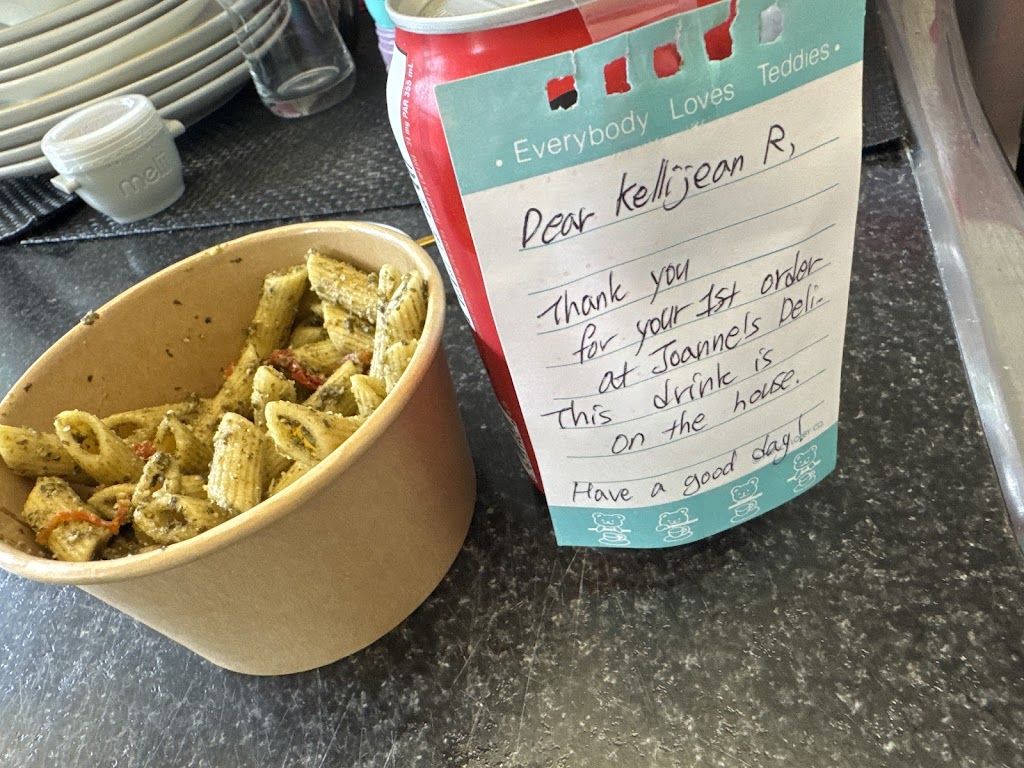 PAR 355 mL
meli
• Everybody Loves Teddies •
Dear Kellijean R,
Thank you
for your 1st order
at Joannels Deli.
This drink is
on the house.
Have a good day!